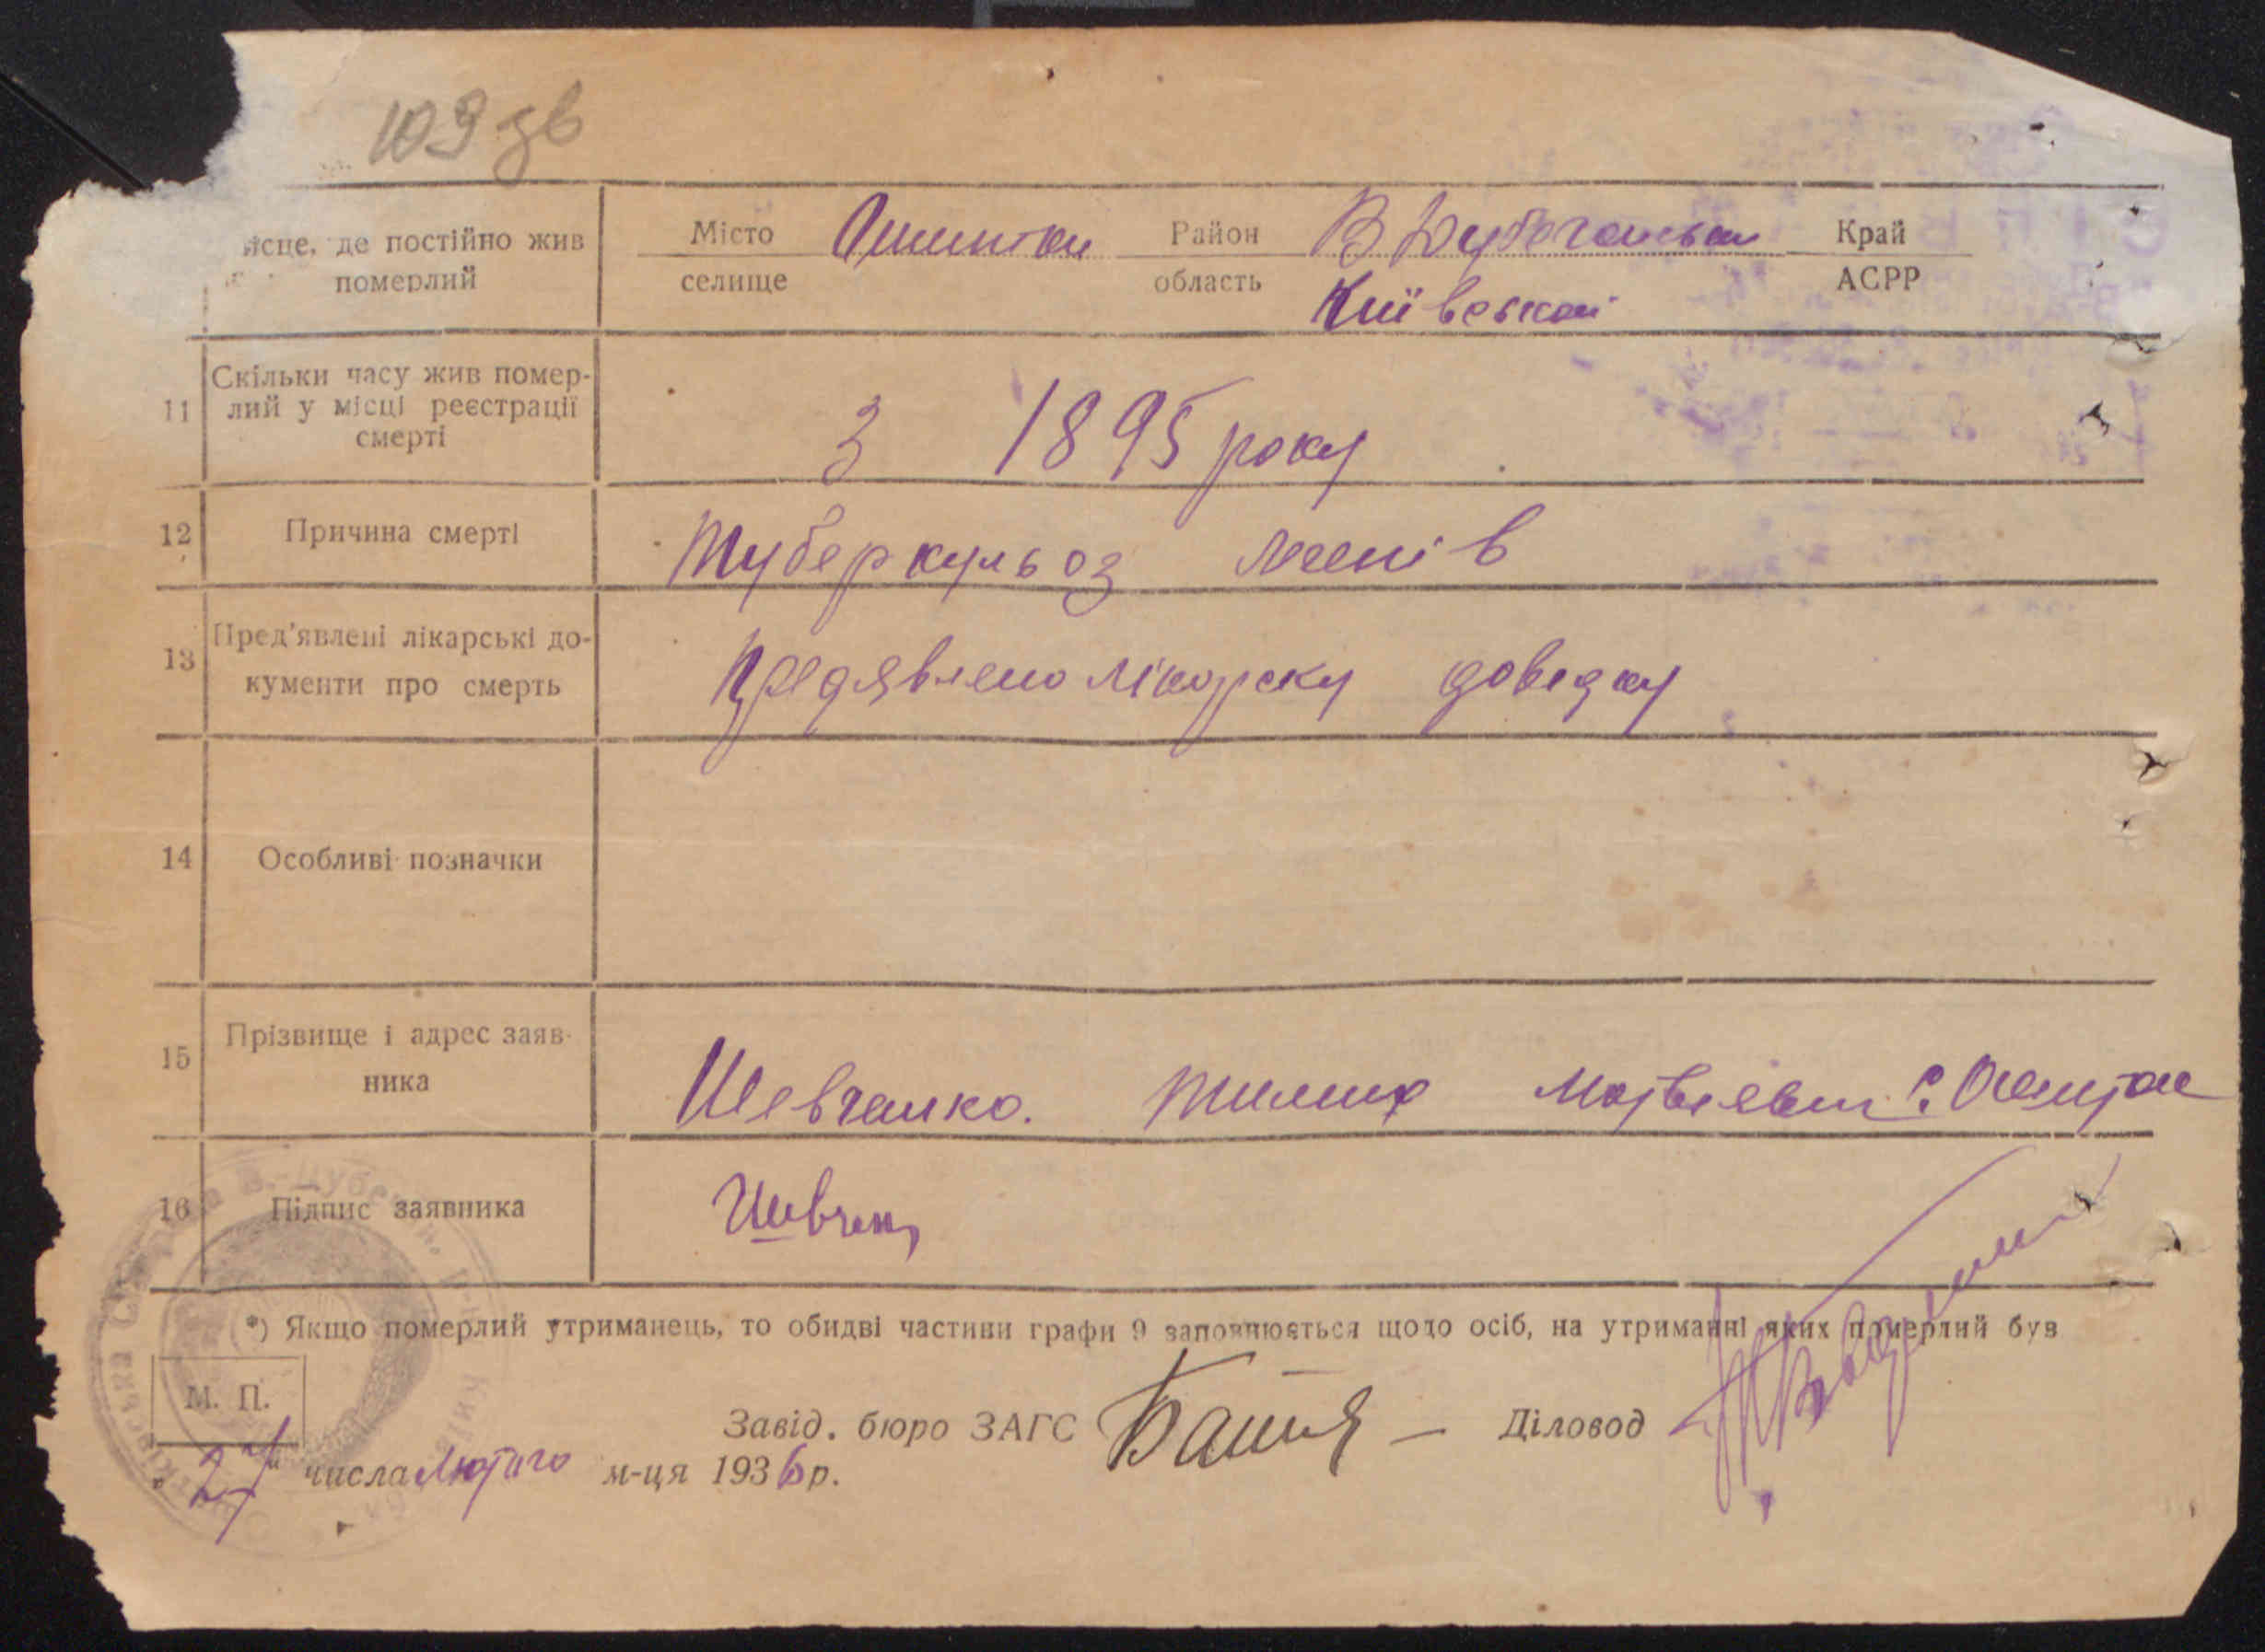 109 зв
ісце, де постійно жив
померлий
Місто Ошитки Район В Дубечанськ Край
селище область АСРР
Київської
11 Скільки часу жив помер-
лий у місці реєстрації
смерті
З 1895 року
12 Причина смерті Туберкульоз легенів
13 Пред'явлені лікарські до-
кументи про смерть
Предявлено лікарску доведку
14 Особливі позначки
15 Прізвище і адрес заяв-
ника
Шевченко. Тимих Матвієвич с. Ошитки
16 Підпис заявника Шевченк
*) Якщо померлий утриманець, то обидві частини графи 9 заповнюється щодо осіб, на утриманні яких померлий був
М. П.
Завід. бюро ЗАГС Діловод
„27" числа Лютого м-ця 1936 р.